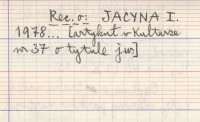 Rec. o: JACYNA I.
1978... [artykuł w Kulturze
nr 37 o tytule jw]